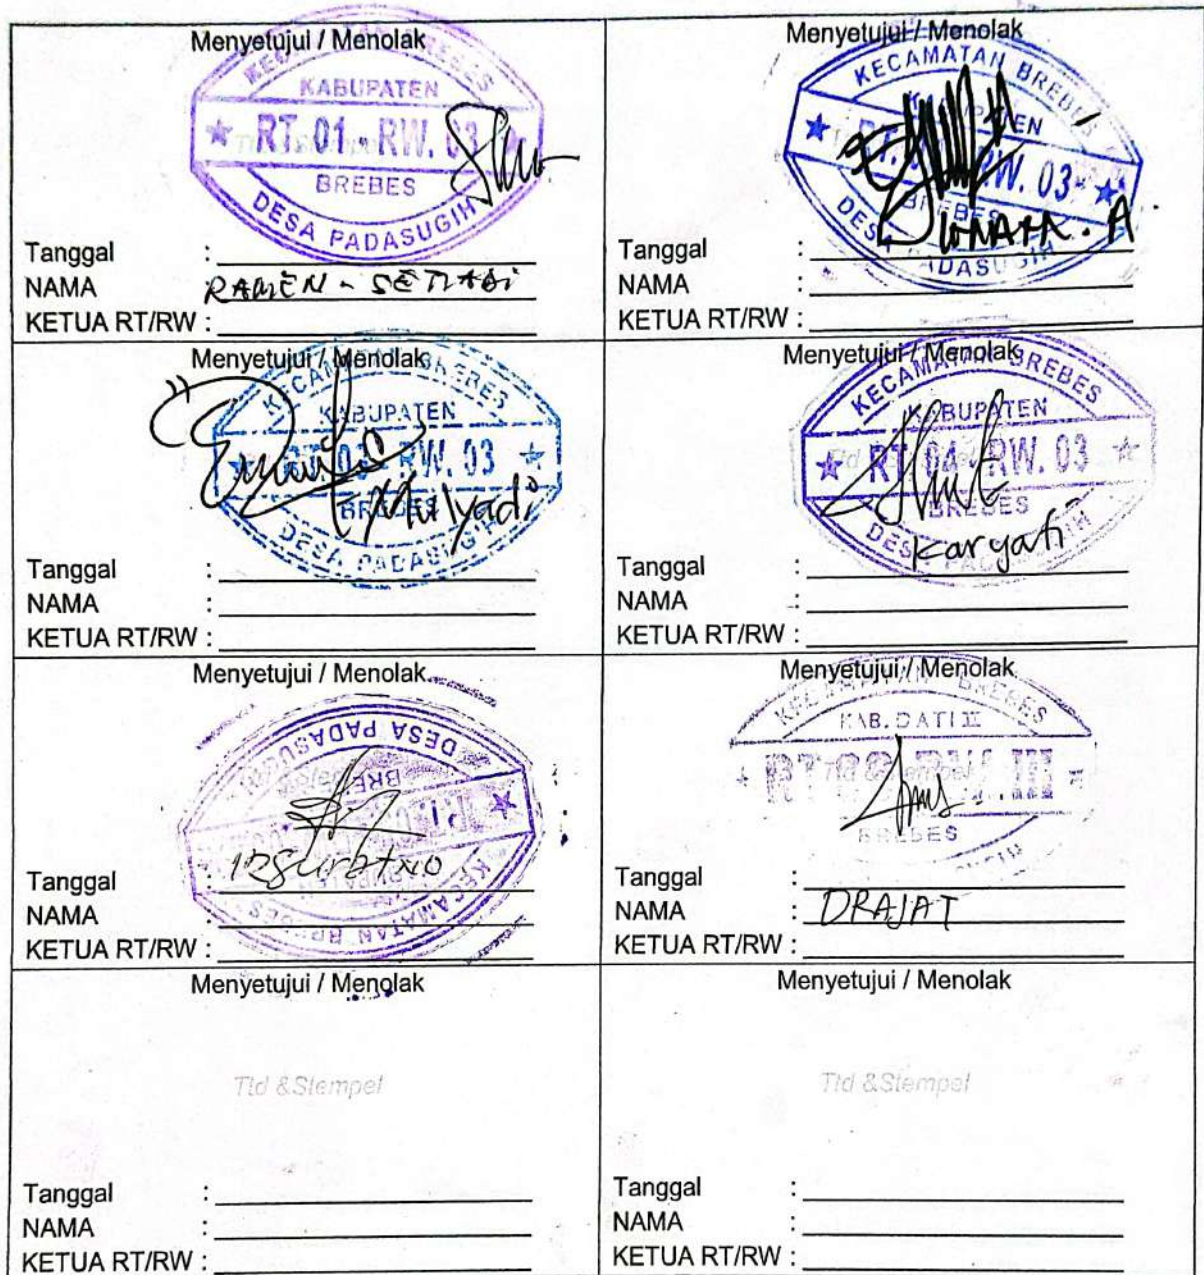 Menyetujui / Menolak
KABUPATEN
RT. 01 - RW. 03
BREBES
DESA PADASUGIH
Tanggal :
NAMA
KETUA RT/RW :
Menyetujui / Menolak
KECAMATAN BREBES
RW. 03
DESA PADASUGIH
Tanggal :
NAMA :
KETUA RT/RW :
Menyetujui / Menolak
KECAMATAN BREBES
KABUPATEN
RT. 03 - RW. 03
Mulyadi
BREBES
DESA PADASUGIH
Tanggal :
NAMA :
KETUA RT/RW :
Menyetujui / Menolak
KECAMATAN BREBES
KABUPATEN
RT. 04 - RW. 03
BREBES
DESA
Karyati
Tanggal :
NAMA :
KETUA RT/RW :
Menyetujui / Menolak
DESA PADASU
KECAMATAN BREBES
Tanggal :
NAMA :
KETUA RT/RW :
Menyetujui / Menolak
BREBES
KAB. DATI II
Ttd & Stempel
BREBES
Tanggal :
NAMA : DRAJAT
KETUA RT/RW :
Menyetujui / Menolak
Ttd &Stempel
Tanggal :
NAMA :
KETUA RT/RW :
Menyetujui / Menolak
Ttd &Stempel
Tanggal :
NAMA :
KETUA RT/RW :